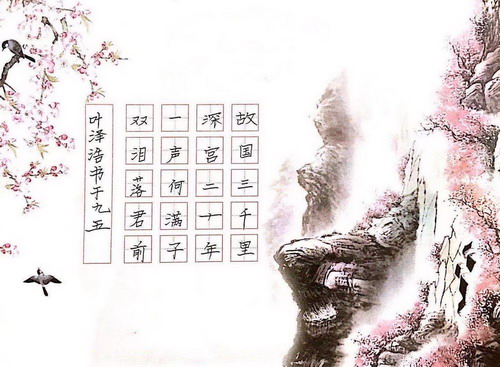 故国三千里
深宫二十年
一声何满子
双泪落君前
叶泽浩书于九五